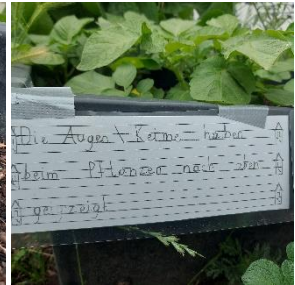 Die Augen\Keime haben
beim Pflanzen nach oben
gezeigt